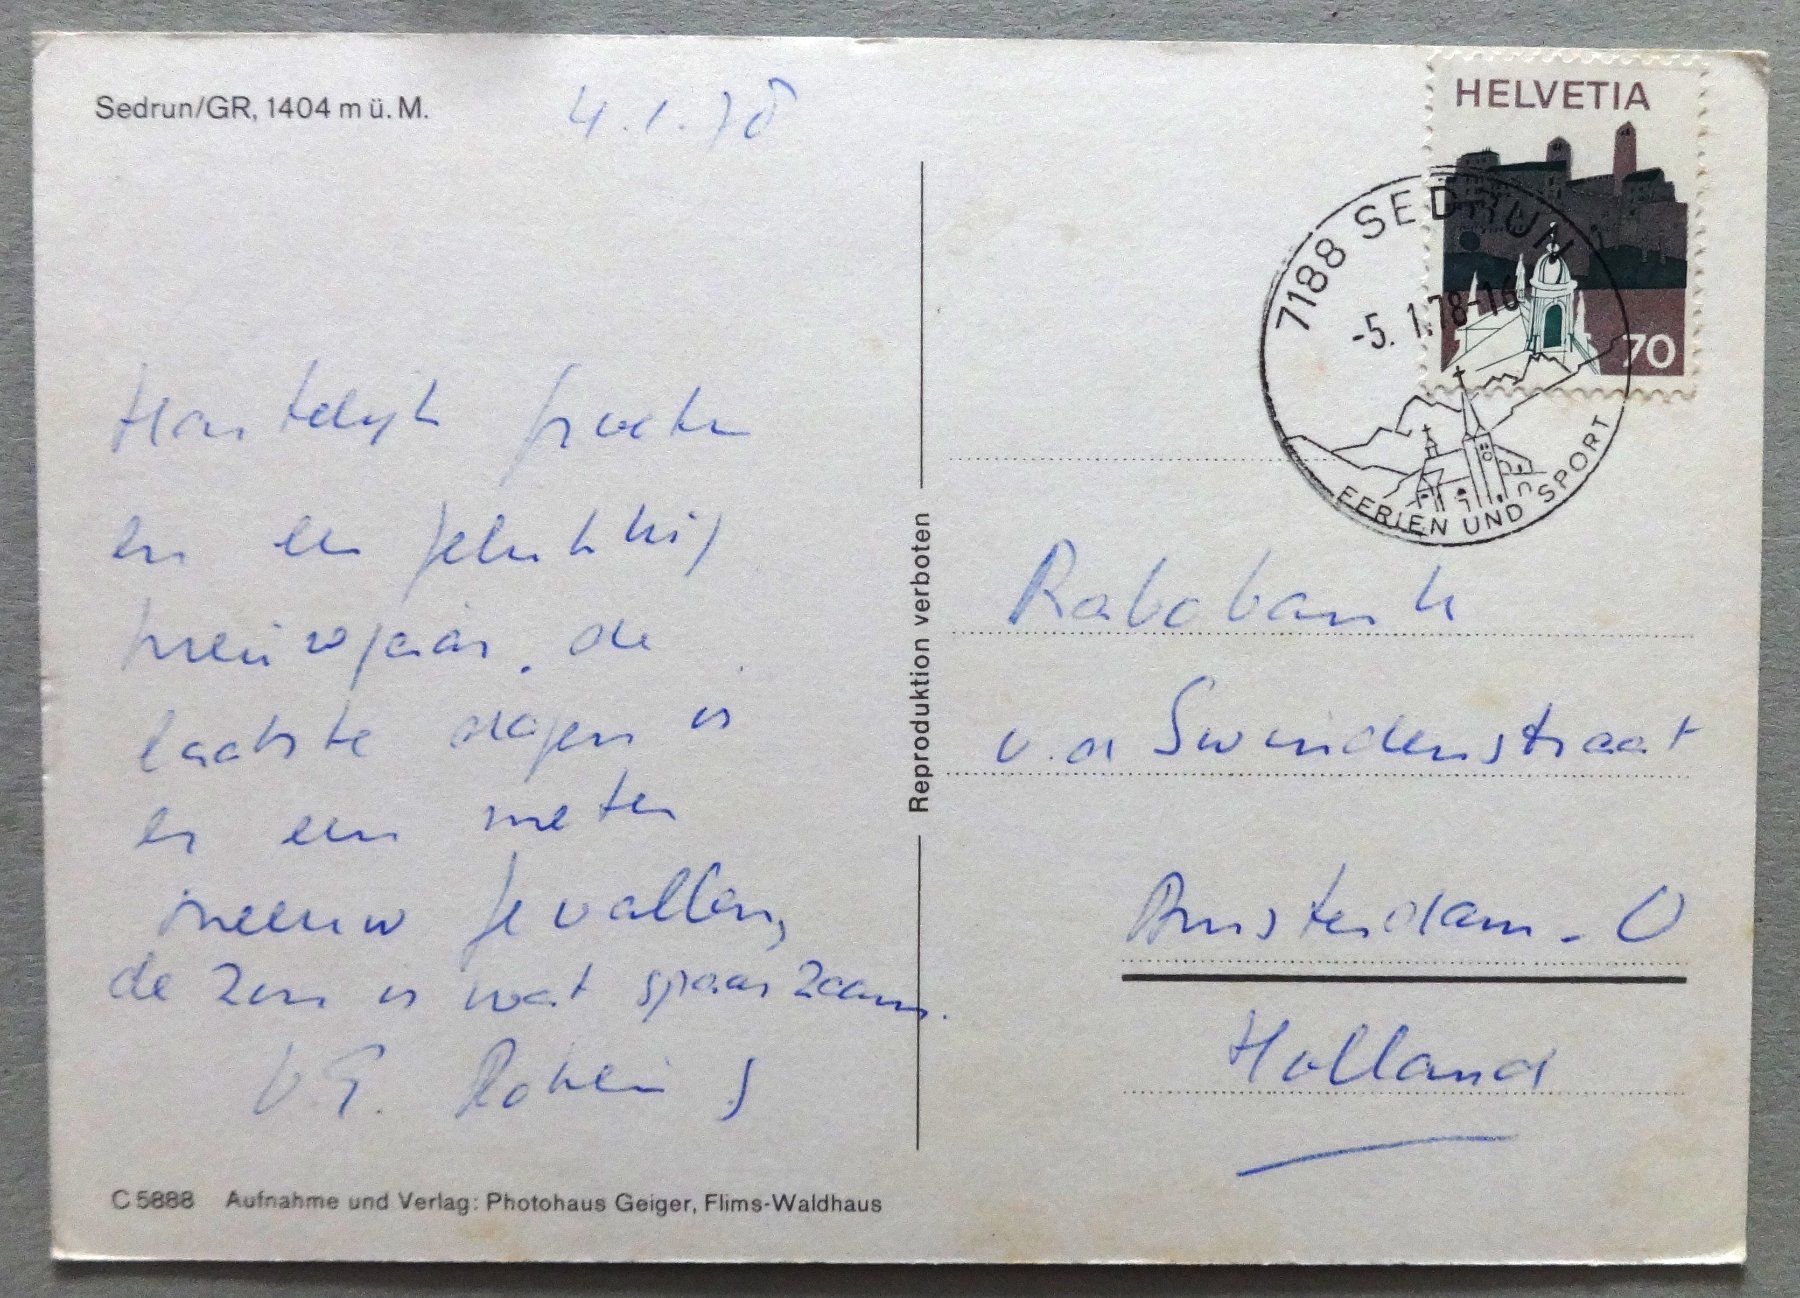 Sedrun/GR, 1404 m ü. M.
4.1.78
Hartelijk groeten
en een gelukkig
nieuwjaar. de
laatste dagen is
er een meter
sneeuw gevallen,
de zon is wat spaarzaam.
C 5888 Aufnahme und Verlag: Photohaus Geiger, Flims-Waldhaus
Reproduktion verboten
HELVETIA
70
7188 SEDRUN
-5. 1.78-16
FERIEN UND SPORT
Rabobank
v.d Swindenstraat
Amsterdam - O
Holland